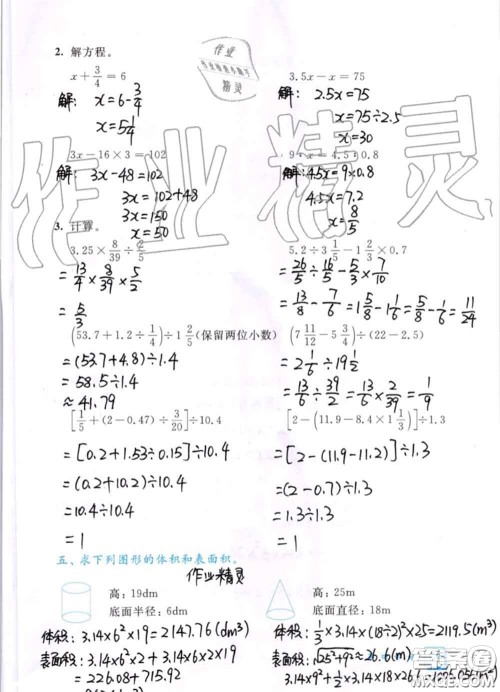 2. 解方程。
x + 3/4 = 6
解: x = 6 - 3/4
x = 5 1/4
3.5x - x = 75
解: 2.5x = 75
x = 75 ÷ 2.5
x = 30
3x - 16 × 3 = 102
解: 3x - 48 = 102
3x = 102 + 48
3x = 150
x = 50
9 : x = 4.5 : 0.8
解: 4.5x = 9 × 0.8
4.5x = 7.2
x = 8/5
3. 计算。
3.25 × 8/39 ÷ 2/5
= 13/4 × 8/39 × 5/2
= 5/3
5.2 ÷ 3 1/5 - 1 2/3 × 0.7
= 26/5 ÷ 16/5 - 5/3 × 7/10
= 13/8 - 7/6 = 1 5/8 - 1 1/6 = 5/8 - 1/6 = 11/24
(53.7 + 1.2 ÷ 1/4) ÷ 1 2/5 (保留两位小数)
= (53.7 + 4.8) ÷ 1.4
= 58.5 ÷ 1.4
≈ 41.79
(7 11/12 - 5 3/4) ÷ (22 - 2.5)
= 2 1/6 ÷ 19 1/2
= 13/6 ÷ 39/2 = 13/6 × 2/39 = 1/9
[1/5 + (2 - 0.47) ÷ 3/20] ÷ 10.4
= [0.2 + 1.53 ÷ 0.15] ÷ 10.4
= (0.2 + 10.2) ÷ 10.4
= 10.4 ÷ 10.4
= 1
[2 - (11.9 - 8.4 × 1 1/3)] ÷ 1.3
= [2 - (11.9 - 11.2)] ÷ 1.3
= (2 - 0.7) ÷ 1.3
= 1.3 ÷ 1.3
= 1
五、求下列图形的体积和表面积。
作业精灵
高: 19dm
底面半径: 6dm
高: 25m
底面直径: 18m
体积: 3.14×6²×19 = 2147.76 (dm³)
表面积: 3.14×6²×2 + 3.14×6×2×19
= 226.08 + 715.92
体积: 1/3 × 3.14×(18÷2)²×25 = 2119.5 (m³)
表面积: √(25²+9²) ≈ 26.6 (m)
作业精灵